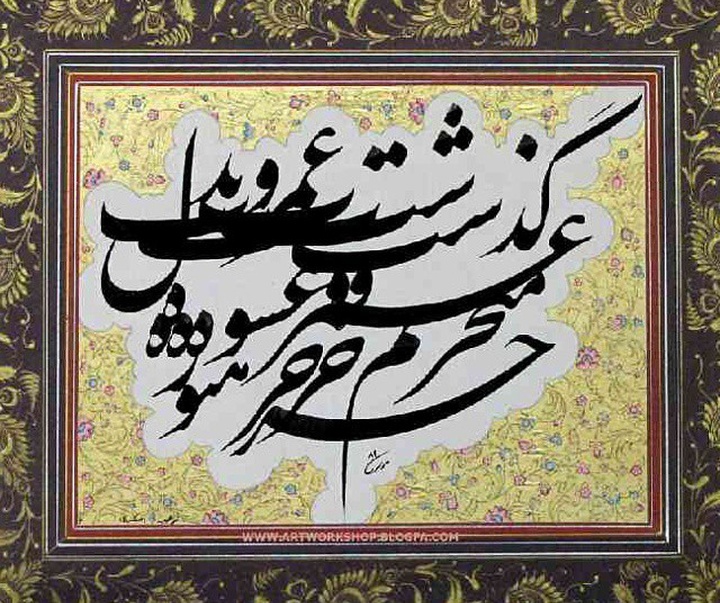 گذشت عمر و بدل
عشوه می خریم هنوز
WWW.ARTWORKSHOP.BLOGFA.COM